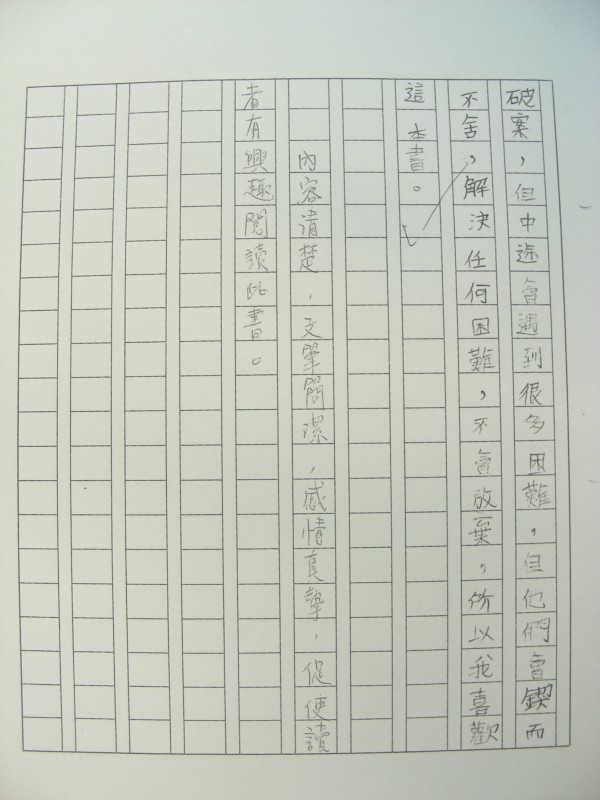 破案，但中途會遇到很多困難，但他們會鍥而
不舍，解決任何困難，不會放棄，所以我喜歡
這本書。
內容清楚，文筆簡潔，感情真摯，促使讀
者有興趣閱讀此書。